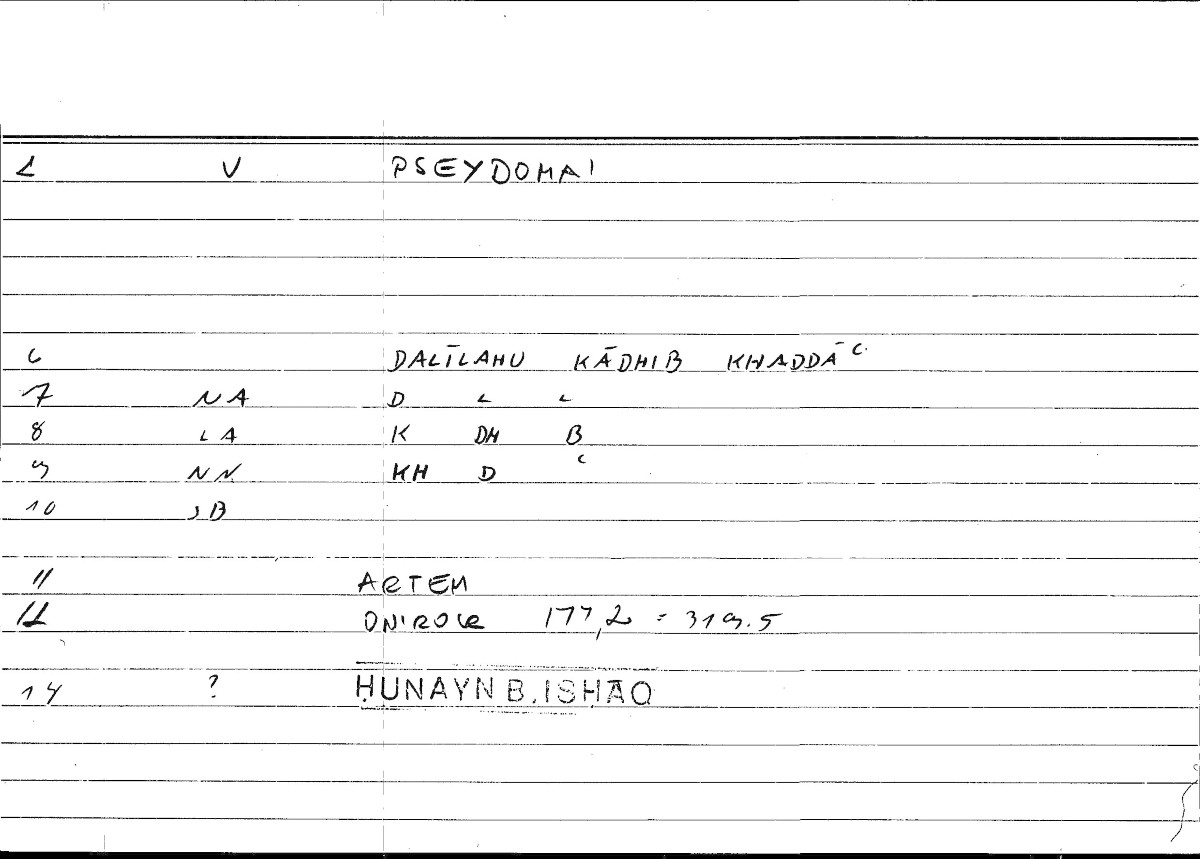 1 V PSEYDOMAI
6 DALĪLAHU KĀDHIB KHADDĀʿ
7 NA D L L
8 LA K DH B
9 NN KH D ʿ
10 JB
11 ARTEM
12 ONIROCR 177,2 = 319.5
14 ? ḤUNAYN B. ISḤĀQ